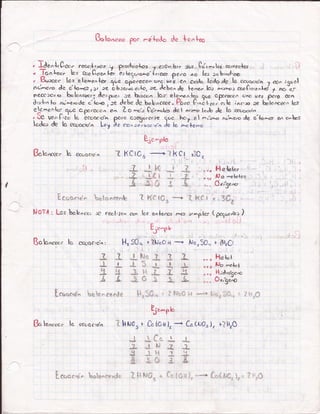 Balanceo por método de tanteo
• Identificar reactivos y productos y escribir sus fórmulas correctas.
• Tantear los coeficientes estequiométricos pero no los subíndices
• Buscar los elementos que aparecen una vez en cada lado de la ecuación y con igual
número de átomos,
necesario balancear; después se buscan los elementos que aparecen una vez pero con
distinto número de átomos, se debe de balancear. Para finalizar
elementos que aparecen en 2 o más fórmulas del mismo lado de la ecuación
• Se verifica la ecuación para asegurarse que hay el mismo número de átomos en ambos
lados de la ecuación. Ley de conservación de la materia
Ejemplo
Balancear la ecuación 2 KClO3 → 2 KCl + 3O2
2 1 K 1 2 ... Metales
2 1 Cl 1 2 ... No metales
6 3 O 1 ... Oxígeno
Ecuación balanceada 2 KClO3 → 2 KCl + 3O2
NOTA: Los balanceos se realizan con los enteros más simples (pequeños)
Ejemplo
Balancear la ecuación: H2SO4 + 2NaOH → Na2SO4 + 2H2O
2 1 Na 2 2 ... Metal
1 1 S 1 1 ... No metal
4 3 H 2 4 ... Hidrógeno
6 5 O 5 6 ... Oxígeno
Ecuación balanceada H2SO4 + 2NaOH → Na2SO4 + 2H2O
Ejemplo
Balancear la ecuación 2HNO3 + Ca(OH)2 → Ca(NO3)2 + 2H2O
1 1 Ca 1 1
2 1 N 2 2
4 3 H 2 4
8 5 O 8
Ecuación balanceada 2HNO3 + Ca(OH)2 → Ca(NO3)2 + 2H2O